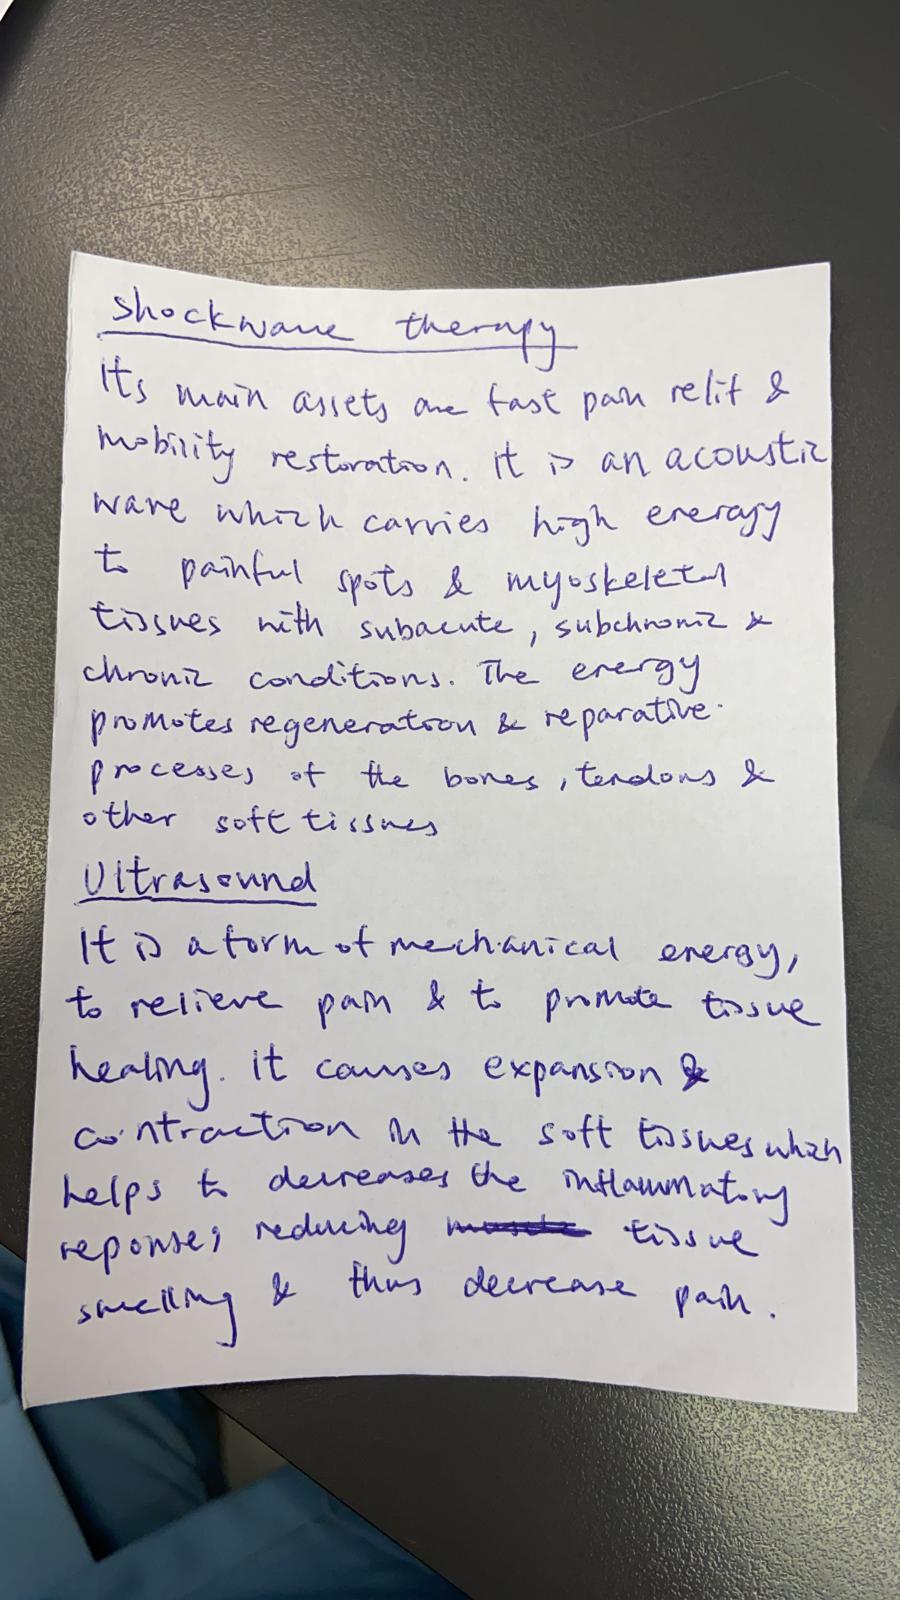 Shockwave therapy
Its main assets are fast pain relif &
mobility restoration. It is an acoustic
wave which carries high energy
to painful spots & myoskeletal
tissues with subacute, subchronic &
chronic conditions. The energy
promotes regeneration & reparative
processes of the bones, tendons &
other soft tissues
Ultrasound
It is a form of mechanical energy,
to relieve pain & to promote tissue
healing. It causes expansion &
contraction in the soft tissues which
helps to decreases the inflammatory
reponses, reducing tissue
swelling & thus decrease pain.